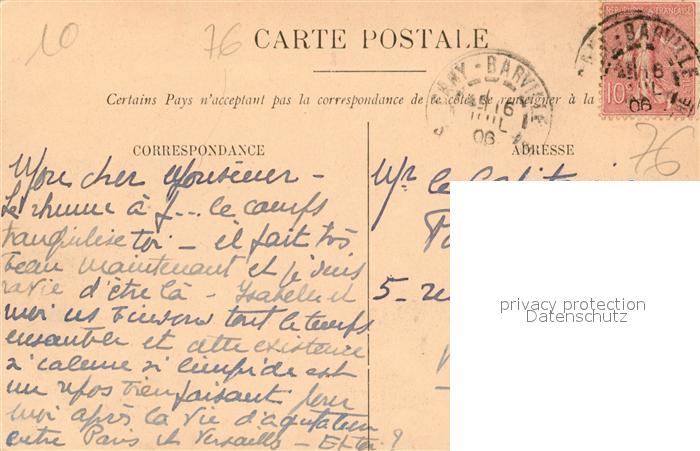 10
76
CARTE POSTALE
CANY-BARVILLE
16
JUIL
06
RÉPUBLIQUE FRANÇAISE
10
CANY-BARVILLE
16
06
Certains Pays n'acceptant pas la correspondance de ce côté, se renseigner à la
76
CORRESPONDANCE
ADRESSE
Mon cher
Le rhume à f... le camps
tranquilise toi - il fait très
beau maintenant et je suis
ravie d'être là - Ysabelle et
moi ns vivons tout le temps
ensemble et cette existence
si calme si limpide est
un repos bienfaisant pour
moi après la vie d'agitation
entre Paris et Versailles - Et toi ?
Mr le Capitaine
5 -
privacy protection
Datenschutz